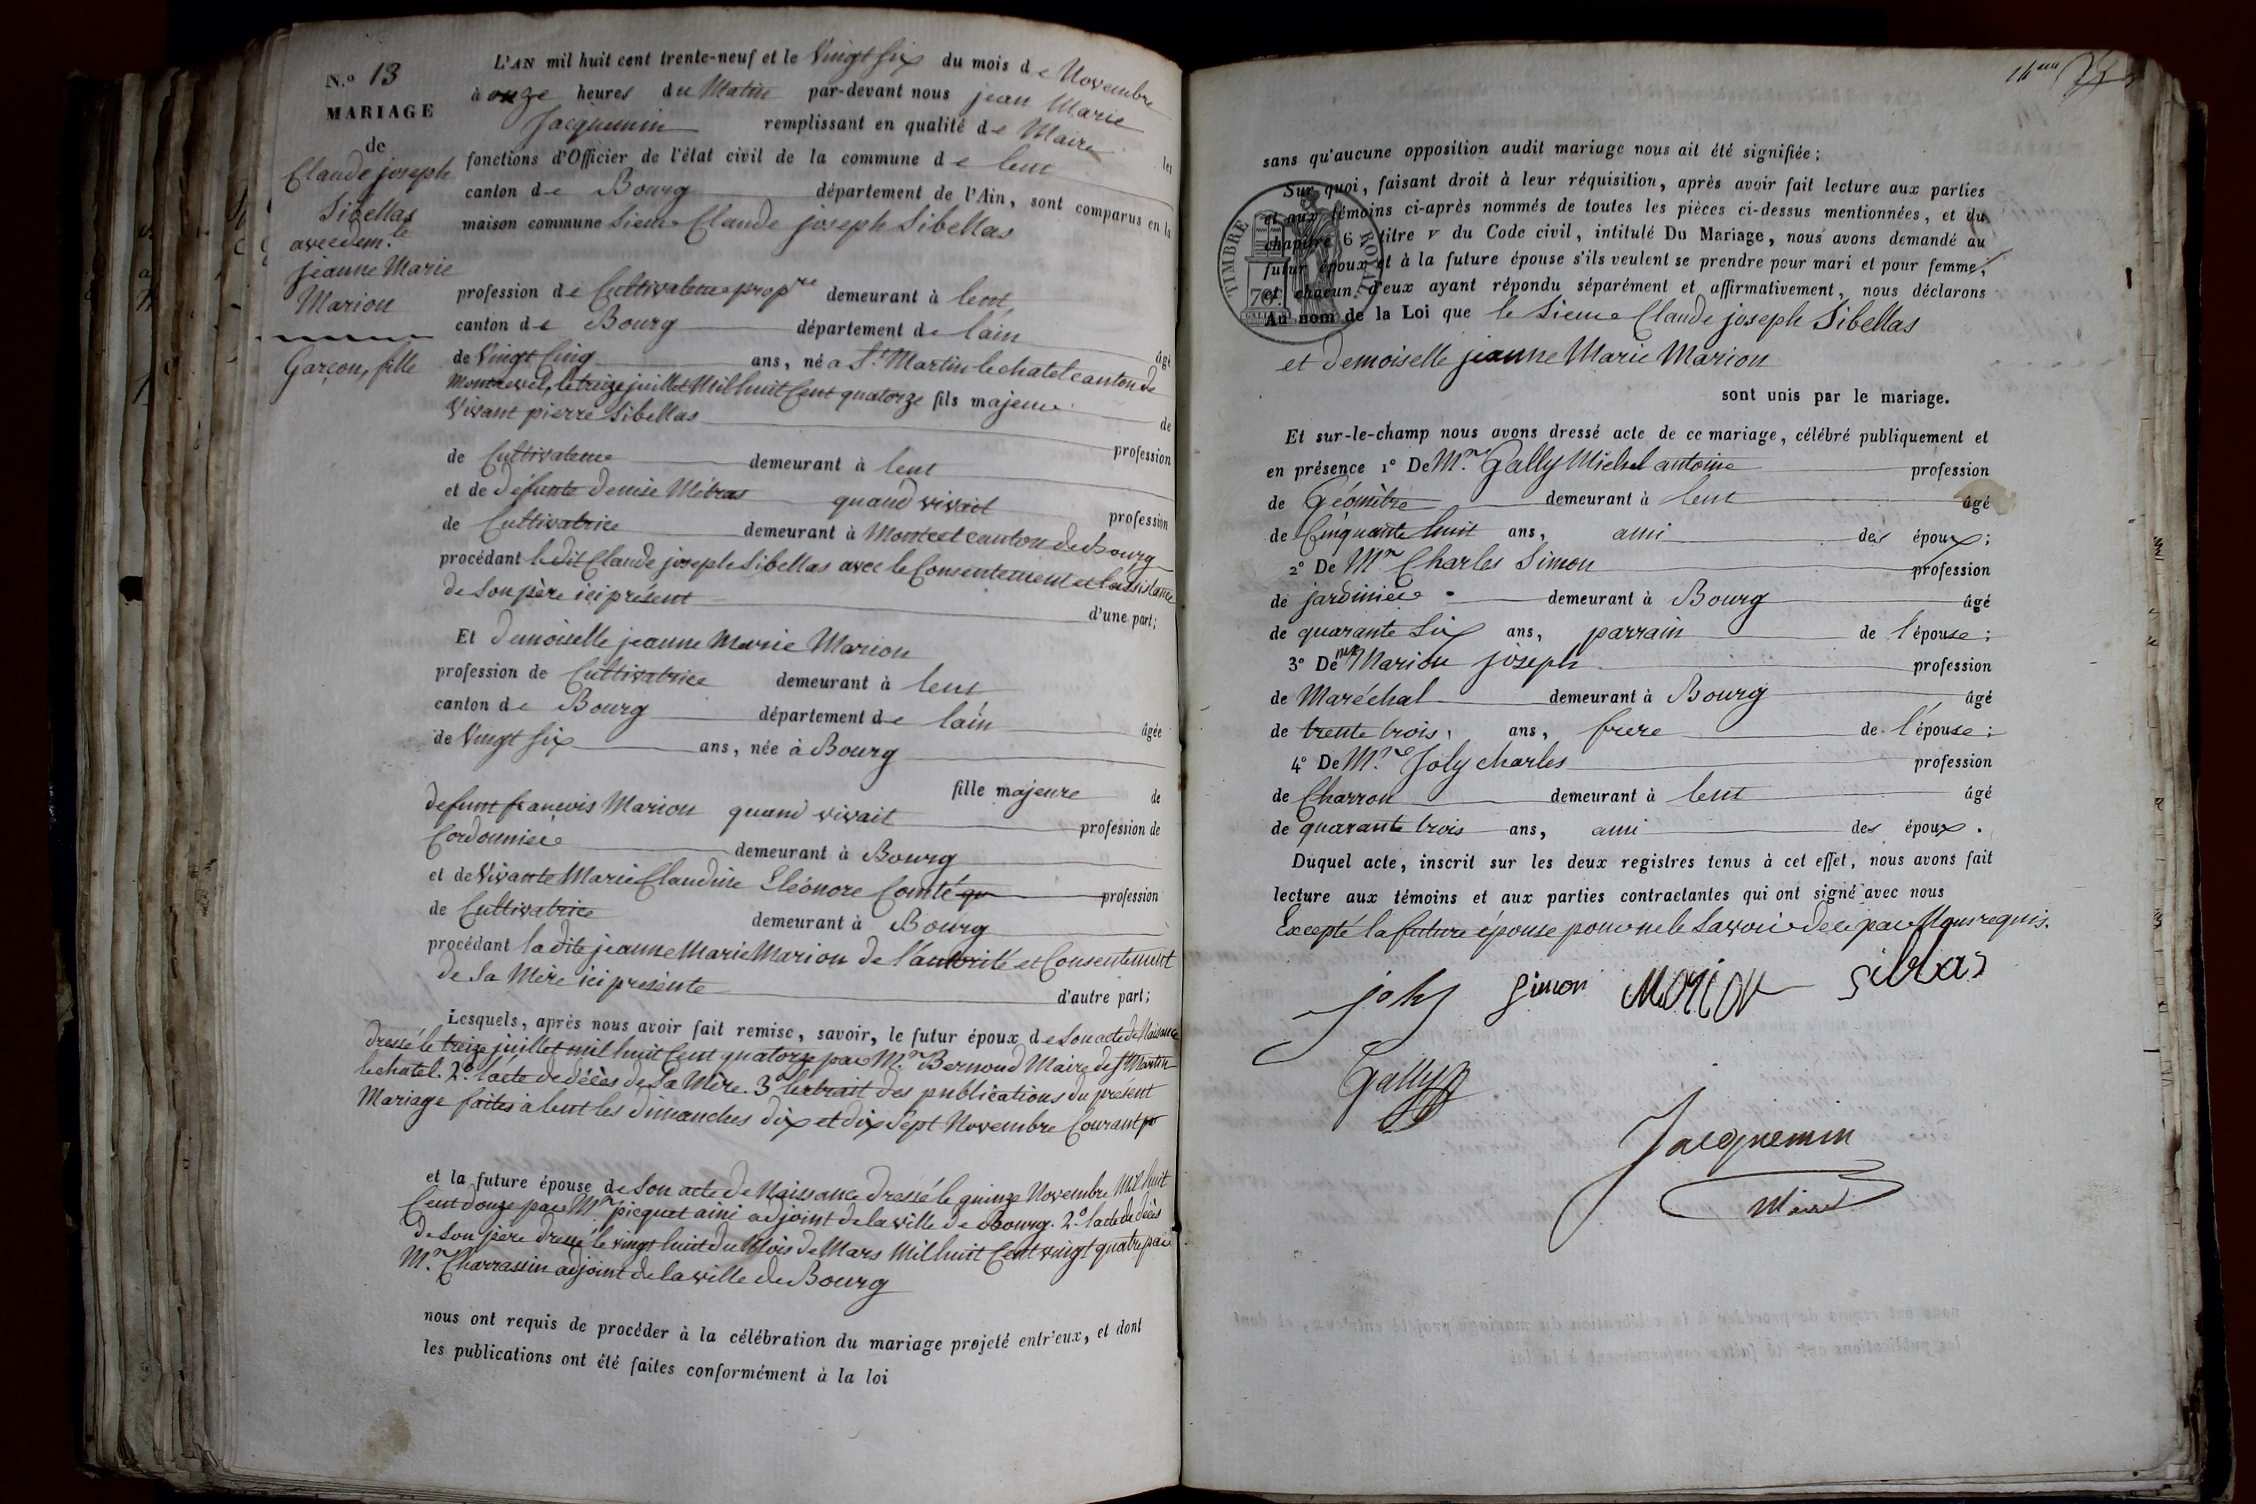 N.º 13
MARIAGE
de
Claude joseph
Sibellas
avec dem.lle
jeanne Marie
Marion
Garçon, fille
L'AN mil huit cent trente-neuf et le Vingt six du mois de Novembre
à onze heures du Matin par-devant nous jean Marie
Jacquemin remplissant en qualité de Maire les
fonctions d'Officier de l'état civil de la commune de lent
canton de Bourg département de l'Ain, sont comparus en la
maison commune Sieur Claude joseph Sibellas
profession de Cultivateur propre demeurant à lent
canton de Bourg département de l'ain âgé
de Vingt Cinq ans, né a St. Martin le chatel canton de
Montrevel, le treize juillet Mil huit Cent quatorze fils majeur de
Vivant pierre Sibellas profession
de Cultivateur demeurant à lent
et de défunte denise Mibras quand vivait profession
de Cultivatrice demeurant à Montcet canton de Bourg
procédant le dit Claude joseph Sibellas avec le Consentement et l'assistance
de Son père ici présent d'une part;
Et demoiselle jeanne Marie Marion
profession de Cultivatrice demeurant à lent
canton de Bourg département de l'ain âgée
de Vingt six ans, née à Bourg
fille majeure de
defunt francois Marion quand vivait profession de
Cordonnier demeurant à Bourg
et de Vivante Marie Claudine Eléonore Comté profession
de Cultivatrice demeurant à Bourg
procédant la dite jeanne Marie Marion de l'autorité et Consentement
de Sa Mère ici présente d'autre part;
Lesquels, après nous avoir fait remise, savoir, le futur époux de Son acte de Naissance
dressé le treize juillet mil huit Cent quatorze par Mr. Bernoud Maire de St Martin
le chatel. 2º. l'acte de décès de Sa Mère. 3º l'extrait des publications du présent
Mariage faites à lent les dimanches dix et dix Sept Novembre Courant
et la future épouse de Son acte de Naissance dressé le quinze Novembre Mil huit
Cent douze par Mr. picquet ainé adjoint de la ville de Bourg. 2º. l'acte de décès
de Son père dressé le vingt huit du Mois de Mars Mil huit Cent vingt quatre par
Mr. Charrassin adjoint de la ville de Bourg
nous ont requis de procéder à la célébration du mariage projeté entr'eux, et dont
les publications ont été faites conformément à la loi
sans qu'aucune opposition audit mariage nous ait été signifiée;
Sur quoi, faisant droit à leur réquisition, après avoir fait lecture aux parties
et aux témoins ci-après nommés de toutes les pièces ci-dessus mentionnées, et du
chapitre 6 titre V du Code civil, intitulé Du Mariage, nous avons demandé au
futur époux et à la future épouse s'ils veulent se prendre pour mari et pour femme;
et chacun d'eux ayant répondu séparément et affirmativement, nous déclarons
Au nom de la Loi que le Sieur Claude joseph Sibellas
et demoiselle jeanne Marie Marion
sont unis par le mariage.
TIMBRE ROYAL
70
Et sur-le-champ nous avons dressé acte de ce mariage, célébré publiquement et
en présence 1º De Mr. Gally Michel antoine profession
de Géomètre demeurant à lent âgé
de Cinquante huit ans, ami des époux;
2º De Mr Charles Simon profession
de jardinier demeurant à Bourg âgé
de quarante Six ans, parrain de l'épouse;
3º De Mr Marion joseph profession
de Maréchal demeurant à Bourg âgé
de trente trois ans, frere de l'épouse;
4º De Mr. Joly charles profession
de Charron demeurant à lent âgé
de quarante trois ans, ami des époux.
Duquel acte, inscrit sur les deux registres tenus à cet effet, nous avons fait
lecture aux témoins et aux parties contractantes qui ont signé avec nous
Excepté la future épouse pour ne le Savoir de ce par Nous requis.
joly Simon Marion Siblas
Gally
Jacquemin
Maire